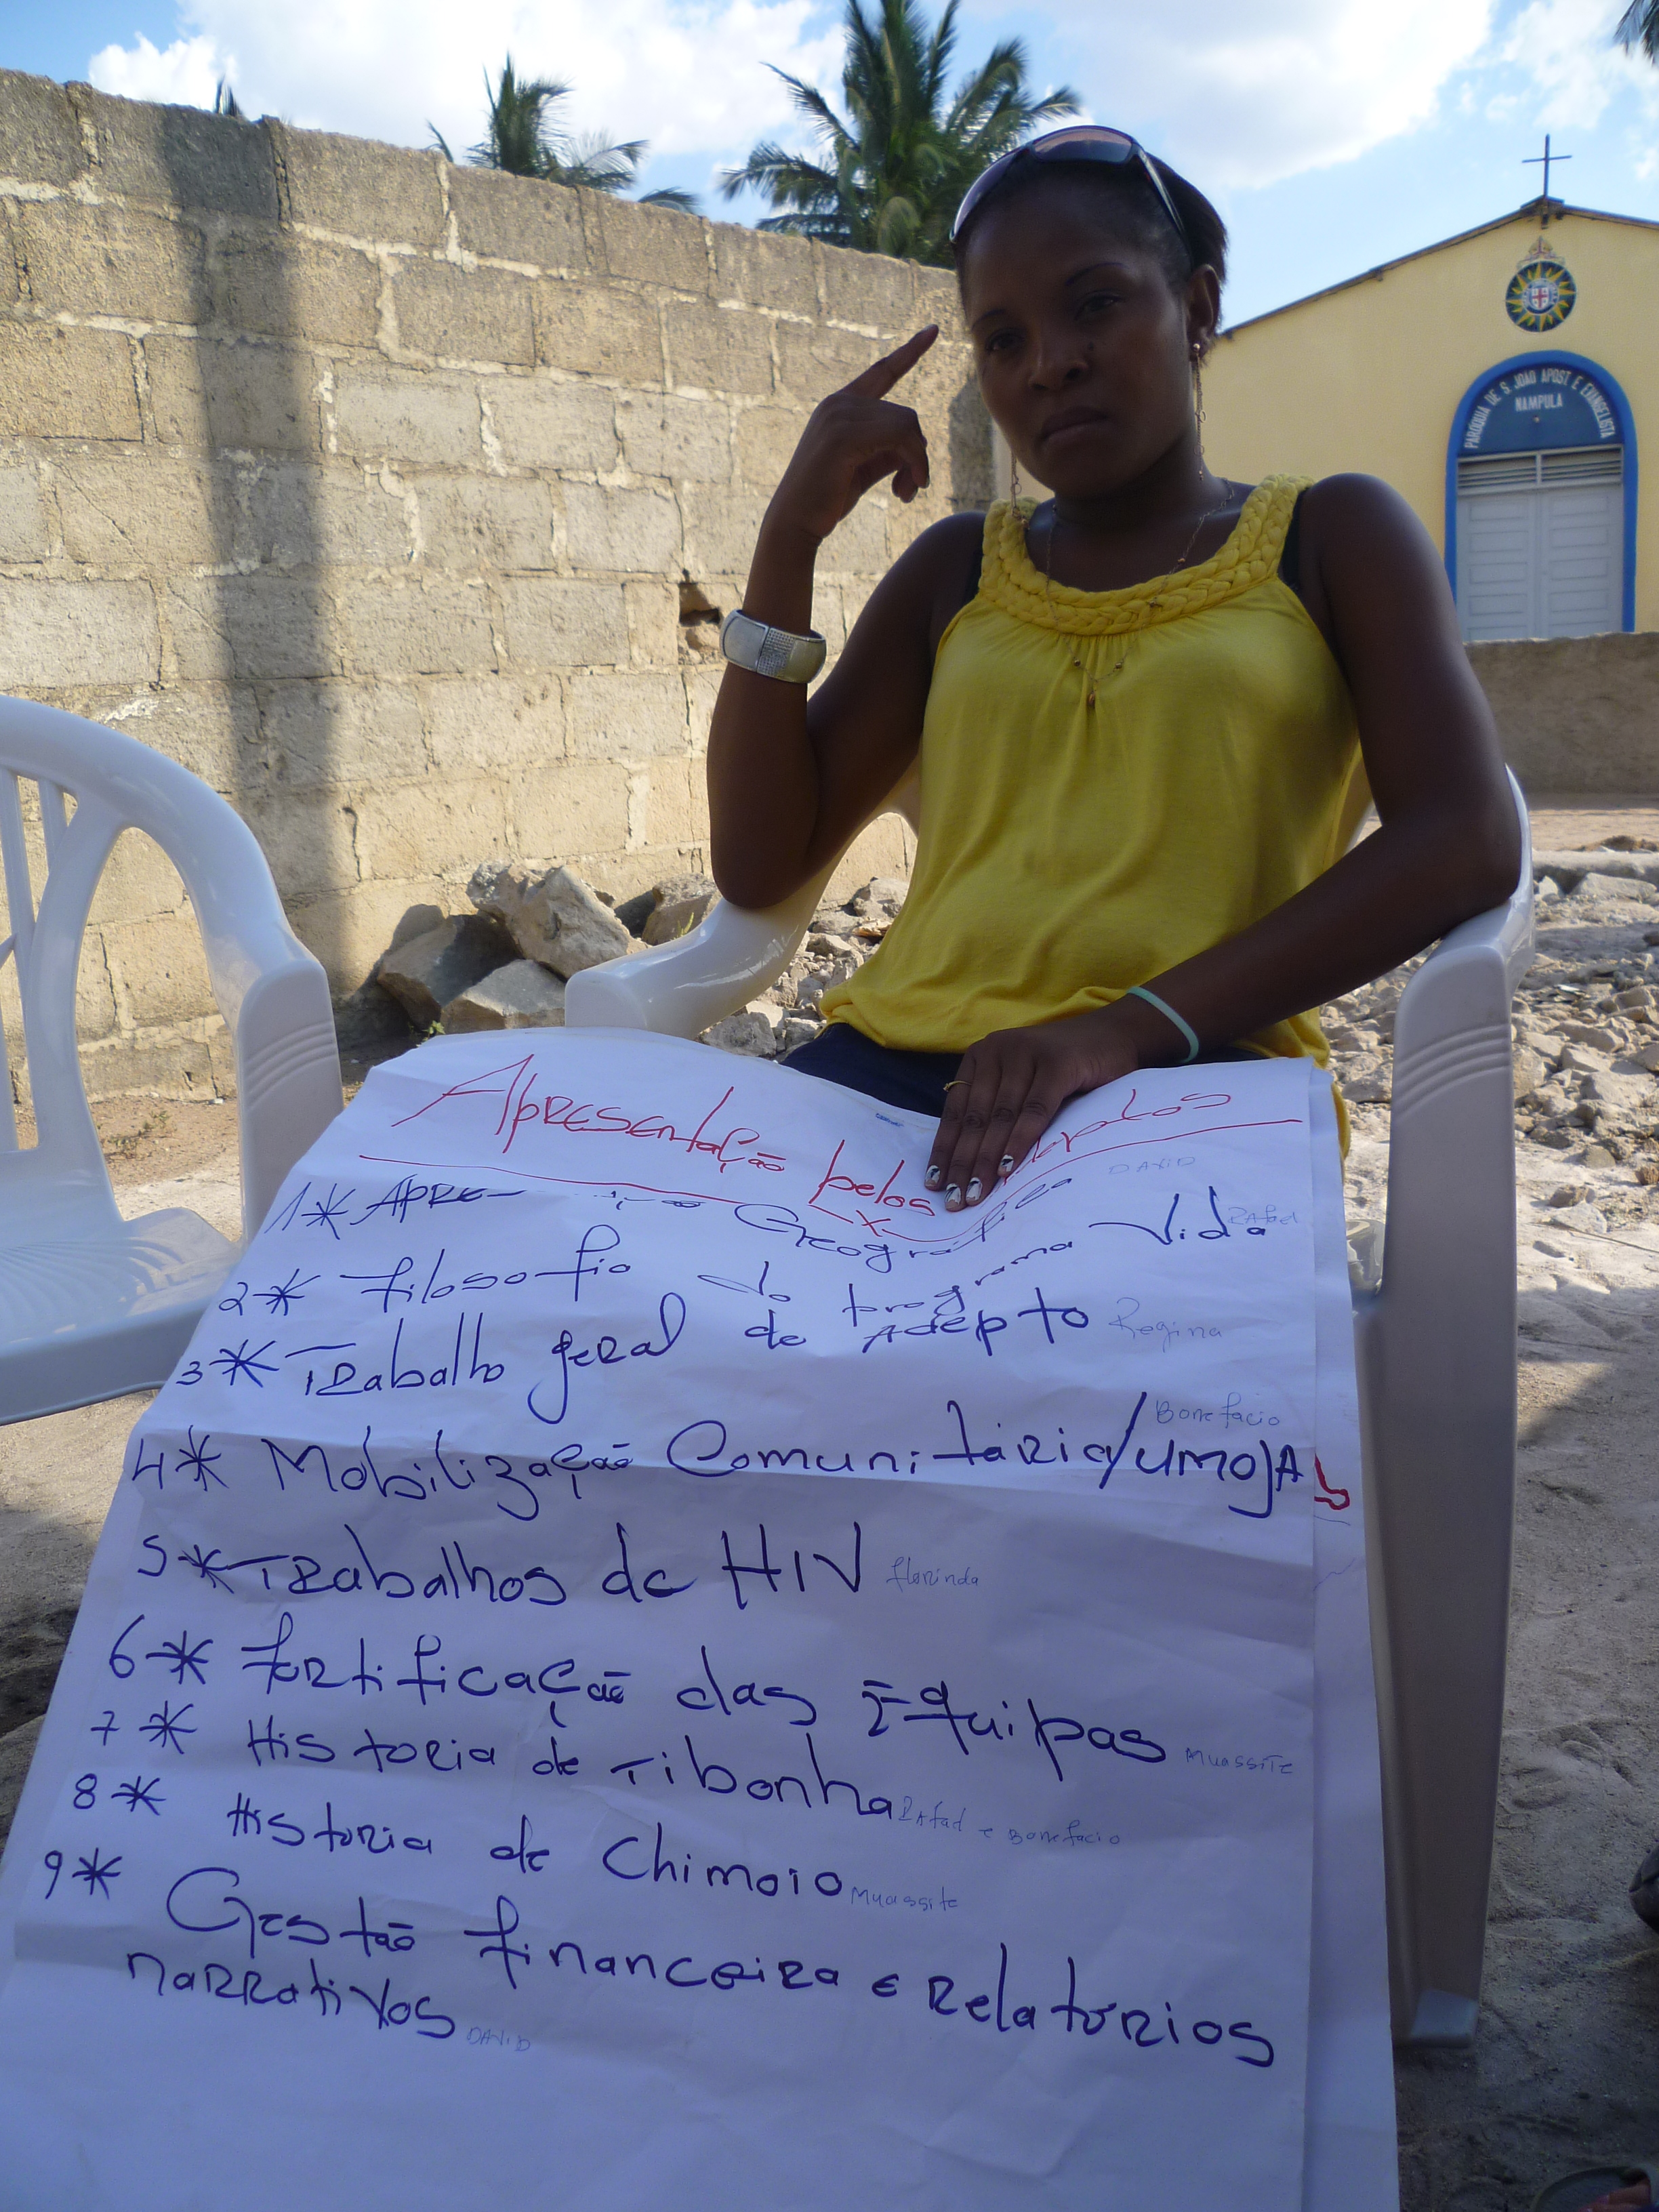 PAROQUIA DE S. JOAO APOST E EVANGELISTA
NAMPULA
Apresentação pelos
DAVID
1* APRE- Geografica
2* filosofio do programa Vida Rafael
3* Trabalho geral de Adepto Regina
4* Mobilização Comunitária/UMOJA Bonefacio
5* Trabalhos de HIV florinda
6* fortificação das Equipas Muassite
7* Historia de Tibonha Rafael e Bonefacio
8* Historia de Chimoio Muassite
9* Gestão financeira e relatórios
narrativos DAVID